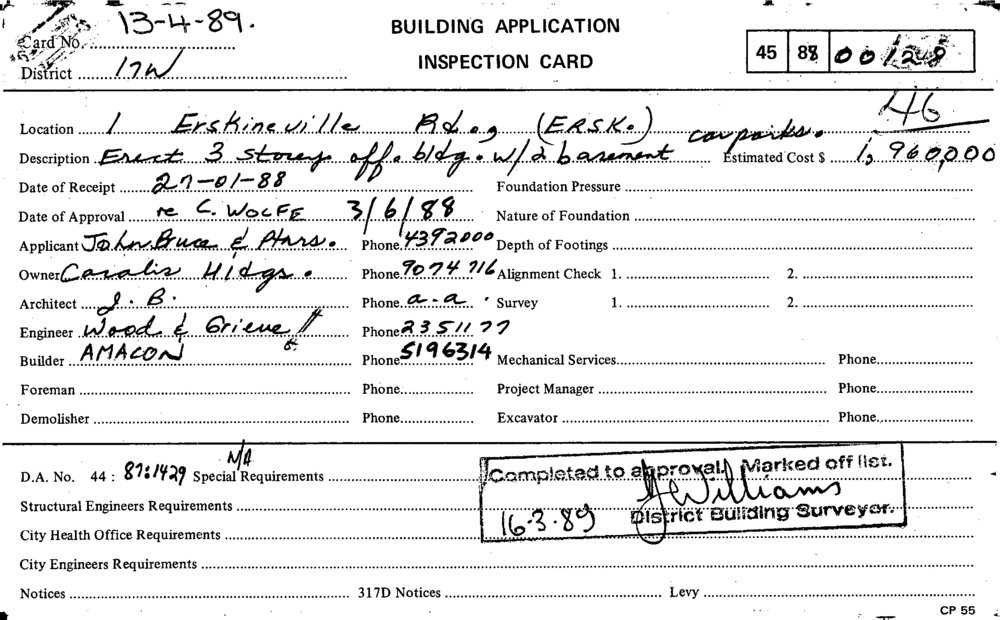 13-4-89.
Card No.
BUILDING APPLICATION
INSPECTION CARD
45 88 00128
District 17W
46
Location 1 Erskineville Rd., (ERSK.)
Description Erect 3 storey off. bldg. w/2 basement carparks. Estimated Cost $ 1,960,000
Date of Receipt 27-01-88 Foundation Pressure
Date of Approval re C. WOLFE 3/6/88 Nature of Foundation
Applicant John Bruce & Ptnrs. Phone 4392000 Depth of Footings
Owner Casalis Hldgs. Phone 9074716 Alignment Check 1. 2.
Architect J. B. Phone a-a. Survey 1. 2.
Engineer Wood & Grieve Phone 2351177
Builder AMACON Phone 5196314 Mechanical Services Phone
Foreman Phone Project Manager Phone
Demolisher Phone Excavator Phone
D.A. No. 44 : 87:1429 Special Requirements N/A
Completed to approval. Marked off list.
Williams
Structural Engineers Requirements
16-3-89 District Building Surveyor.
City Health Office Requirements
City Engineers Requirements
Notices 317D Notices Levy
CP 55